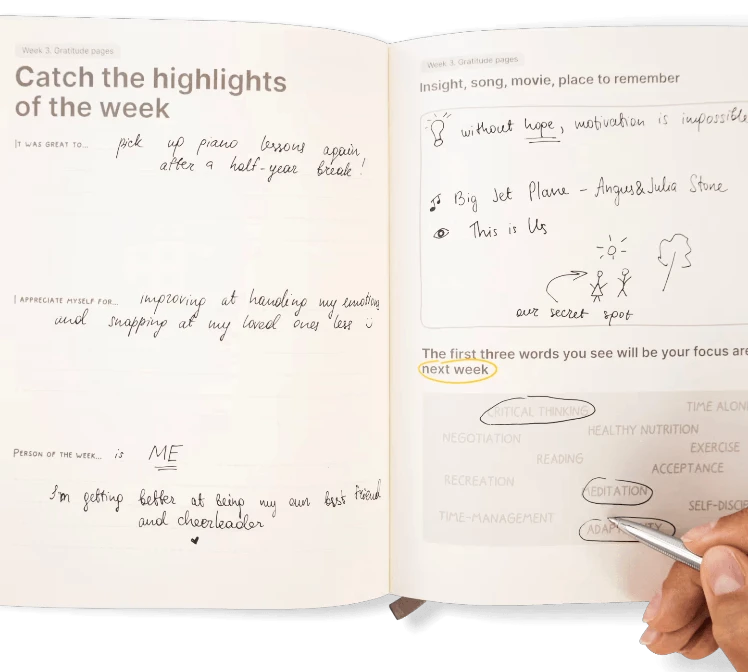 Week 3. Gratitude pages
Catch the highlights
of the week
IT WAS GREAT TO... pick up piano lessons again
after a half-year break!
I APPRECIATE MYSELF FOR... improving at handing my emotions
and snapping at my loved ones less
PERSON OF THE WEEK... is ME
I'm getting better at being my own best friend
and cheerleader
Week 3. Gratitude pages
Insight, song, movie, place to remember
without hope, motivation is impossible
Big Jet Plane - Angus&Julia Stone
This is Us
our secret spot
The first three words you see will be your focus are
next week
CRITICAL THINKING
TIME ALON
NEGOTIATION
HEALTHY NUTRITION
READING
EXERCISE
RECREATION
ACCEPTANCE
MEDITATION
SELF-DISCI
TIME-MANAGEMENT